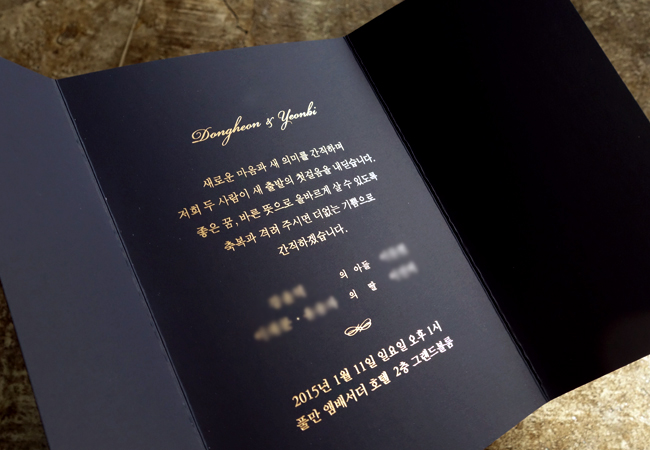 Dongheon & Yeonbi
새로운 마음과 새 의미를 간직하며
저희 두 사람이 새 출발의 첫걸음을 내딛습니다.
좋은 꿈, 바른 뜻으로 올바르게 살 수 있도록
축복과 격려 주시면 더없는 기쁨으로
간직하겠습니다.
의 아들
의 딸
2015년 1월 11일 일요일 오후 1시
풀만 앰배서더 호텔 2층 그랜드볼룸